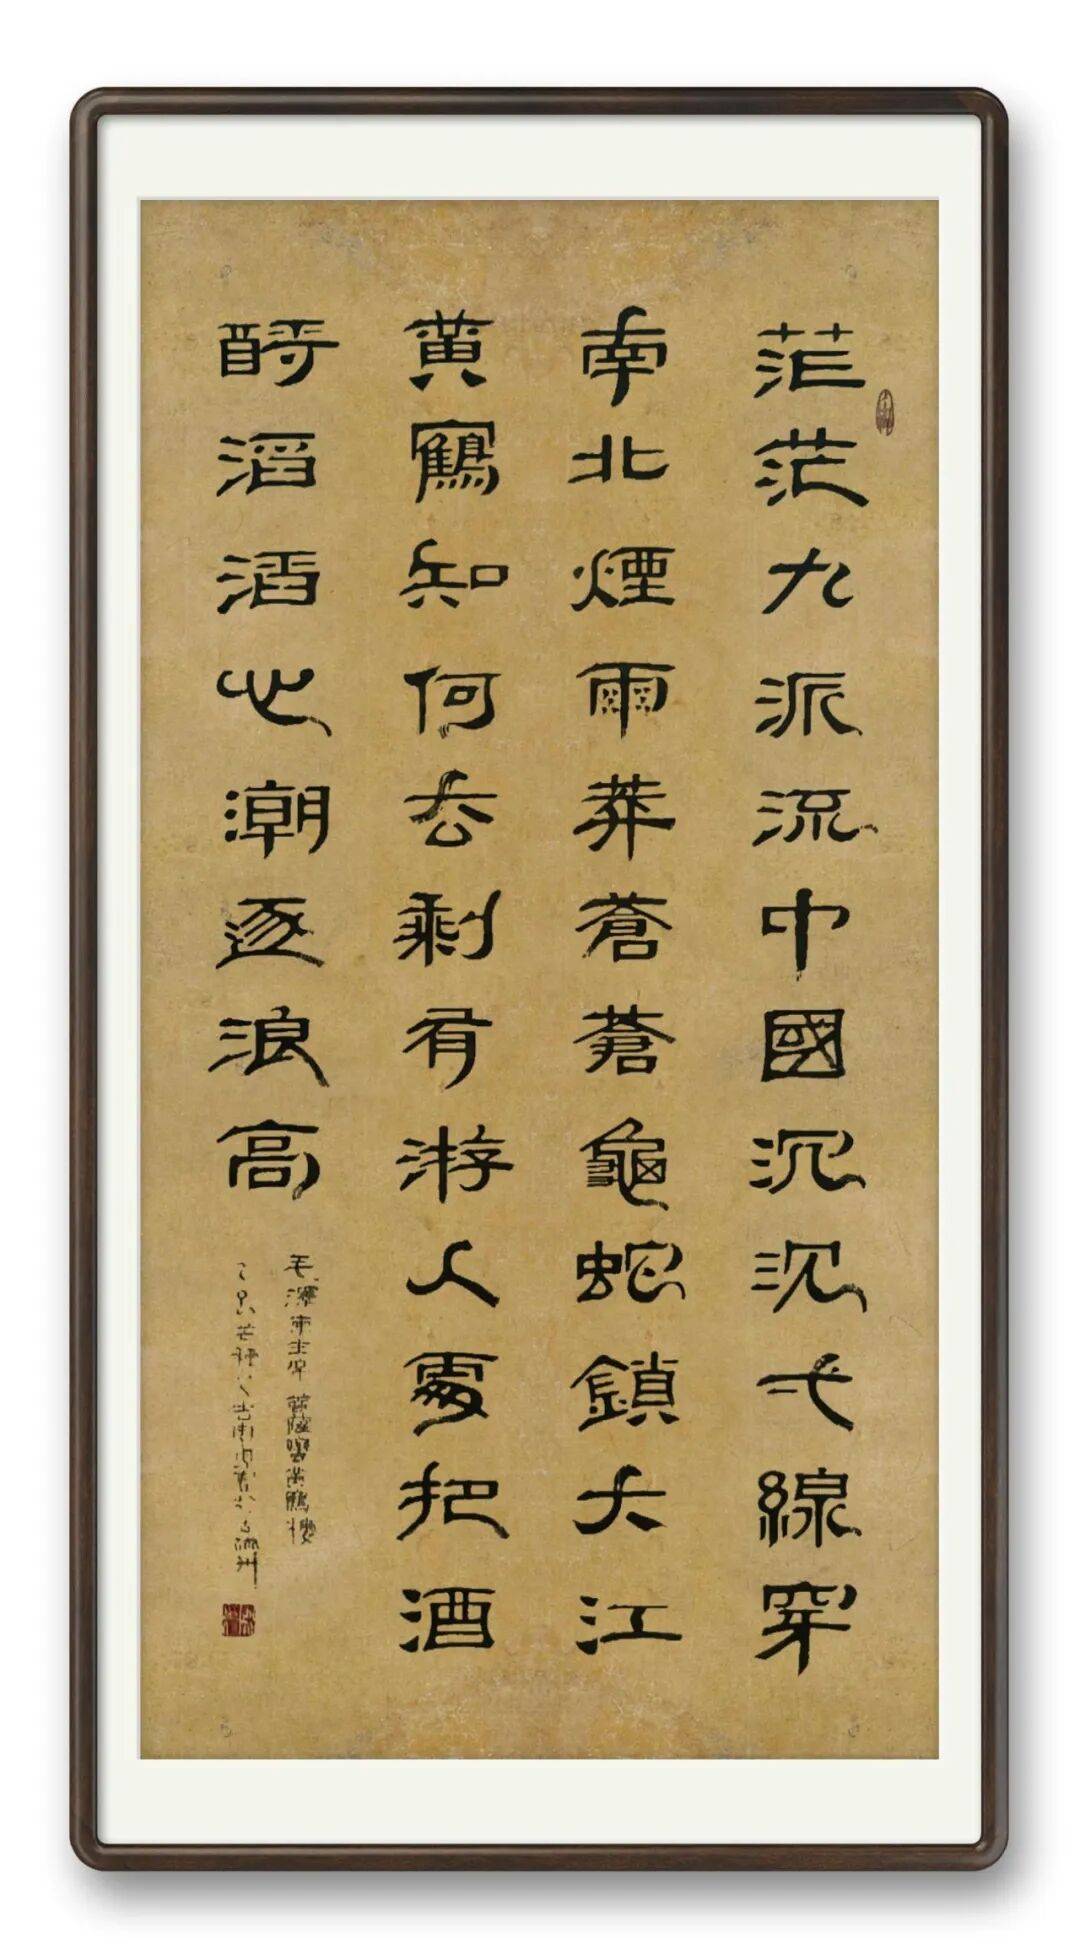 茫茫九派流中國沉沉弌線穿
南北煙雨莽蒼蒼龜蛇鎖大江
黃鶴知何去剩有游人處把酒
酹滔滔心潮逐浪高
毛澤東主席菩薩蠻黃鶴樓
乙巳芒種